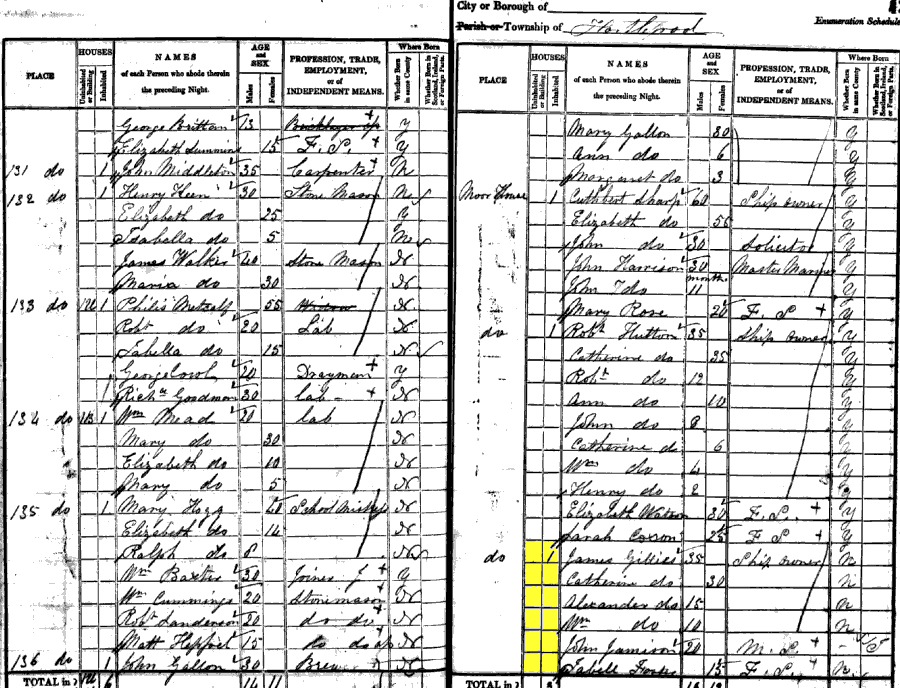 City or Borough of
Parish or Township of
Enumeration Schedule
PLACE
HOUSES
Uninhabited or Building
Inhabited
NAMES
of each Person who abode therein
the preceding Night.
AGE
and
SEX
Males
Females
PROFESSION, TRADE,
EMPLOYMENT,
or of
INDEPENDENT MEANS.
Where Born
Whether Born in same County
Whether Born in Scotland, Ireland, or Foreign Parts.
George Brittan 13 Bricklayer Ap Y
Elizabeth 15 F. S. Y
131 do 1 John Middleton 35 Carpenter N
132 do 1 Henry 30 Stone Mason N
Elizabeth do 25 Y
Isabella do 5 N
James Walker 40 Stone Mason N
Maria do 30 N
133 do 1 Metcalf 55 N
Robt do 20 Lab N
Isabella do 15 N
George 20 Draymen Y
Richd Goodman 30 lab N
134 do 1 Wm Mead 20 lab N
Mary do 30 N
Elizabeth do 10 N
Mary do 5 N
135 do 1 Mary Hogg School N
Elizabeth do 14 N
Ralph do 8 N
Wm Baxter 30 Joiner J Y
Wm Cummings 20 Stonemason N
Robt Sanderson 20 do do N
Matt 15 do do ap N
136 do 1 John Gallon 30 Brewer N
TOTAL in 14 11
PLACE
HOUSES
Uninhabited or Building
Inhabited
NAMES
of each Person who abode therein
the preceding Night.
AGE
and
SEX
Males
Females
PROFESSION, TRADE,
EMPLOYMENT,
or of
INDEPENDENT MEANS.
Where Born
Whether Born in same County
Whether Born in Scotland, Ireland, or Foreign Parts.
Mary Gallon 30 Y
Ann do 6 Y
Margaret do 3 Y
Moor House 1 Cuthbert Sharp 60 Ship owner Y
Elizabeth do 55 Y
John do 30 Solicitor Y
John Harrison 30 Master Y
months
John do 11 Y
Mary Rose 20 F. S. Y
do 1 Robt Hutton 35 Ship owner Y
Catherine do 35 Y
Robt do 12 Y
Ann do 10 Y
John do 8 Y
Catherine do 6 Y
Wm do 4 Y
Henry do 2 Y
Elizabeth Watson 30 F. S. Y
Sarah Coxson 25 F S Y
do 1 James Gillies 35 Ship owner N
Catherin do 30 n
Alexander do 15 n
Wm do 10 n
John Jamieson 20 M. S. - S
Isabell 15 F. S. n
TOTAL in